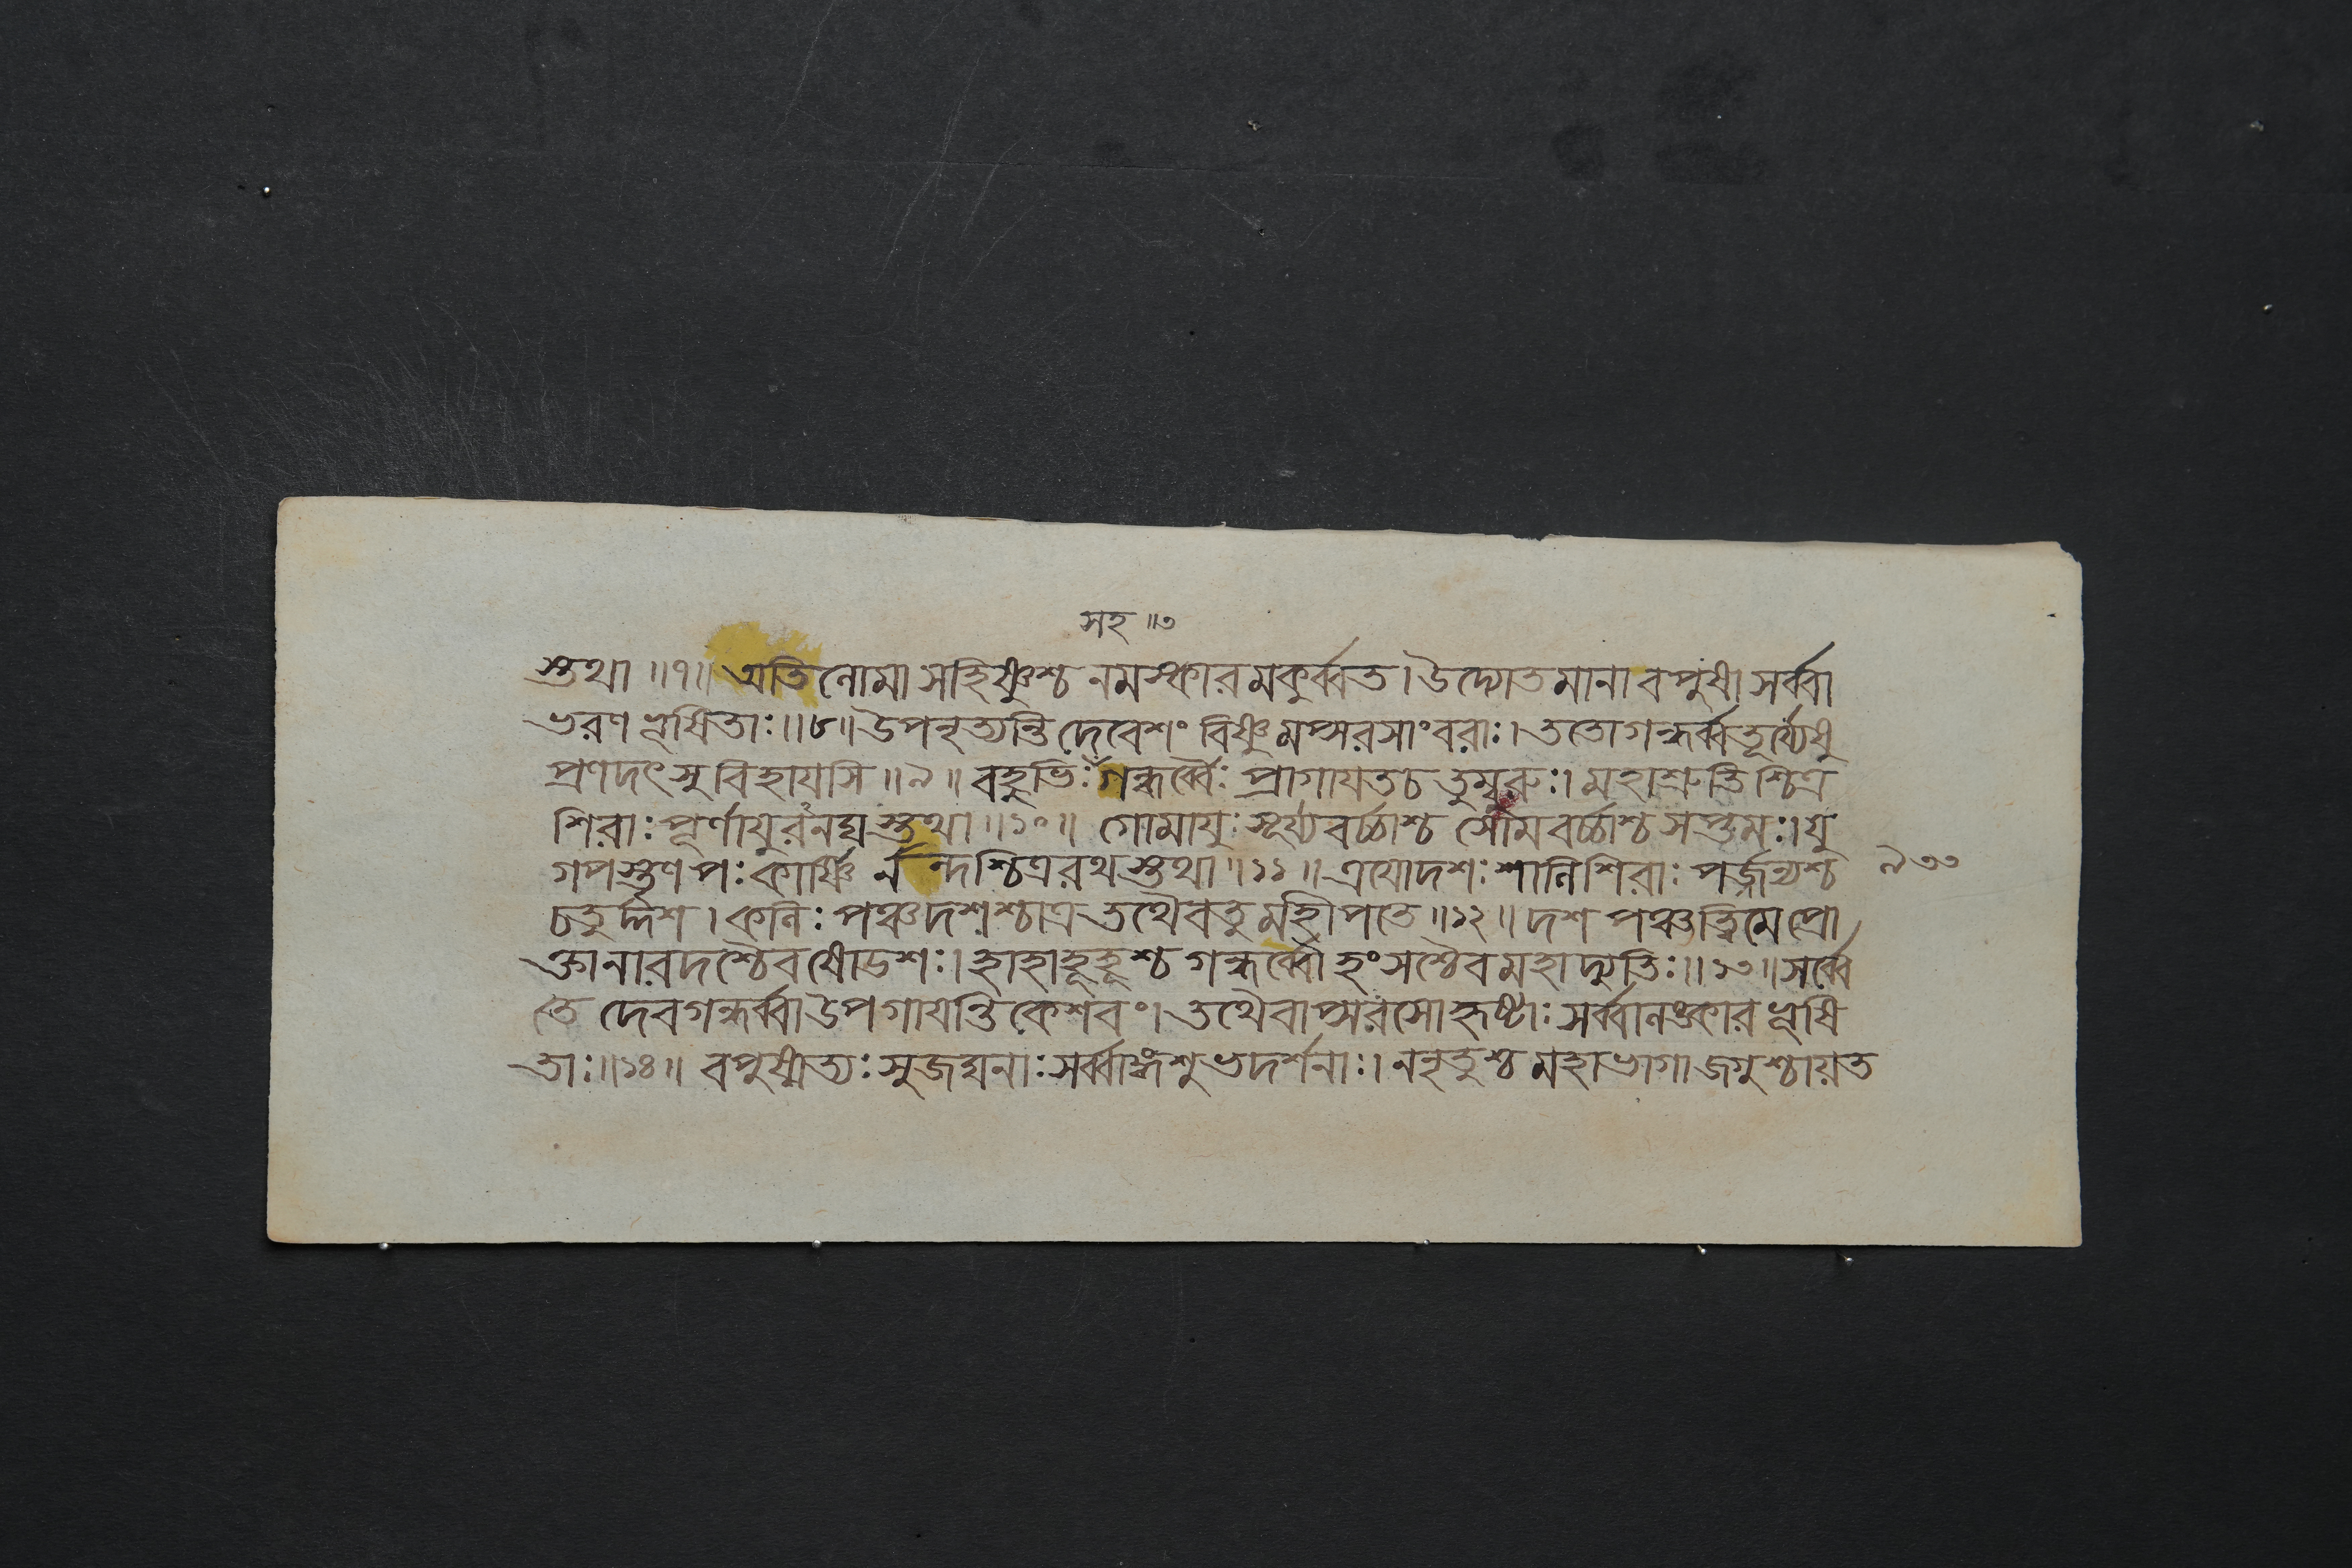 সহ ॥৩
স্তথা ॥৭॥ অতিলোমা সহিষ্ণুশ্চ নমস্কারমকুর্ব্বত। উদ্যোতমানা বপুষা সর্ব্বা
ভরণভূষিতাঃ॥৮॥ উপনৃত্যন্তি দেবেশং বিষ্ণুমপ্সরসাংবরাঃ। ততোগন্ধর্ব্বতূর্য্যেষু
প্রণদৎসু বিহায়সি ॥৯॥ বহুভিঃ গন্ধর্ব্বৈঃ প্রাগায়তচ তুম্বুরুঃ। মহাশ্রুতিশ্চিত্র
শিরাঃ পূর্ণায়ুরনঘস্তথা ॥১০॥ গোমায়ুঃ সূর্য্যবর্চ্চাশ্চ সোমবর্চ্চাশ্চ সপ্তমঃ। যু
গপস্তৃণপঃ কার্ষ্ণি র্নন্দশ্চিত্ররথস্তথা ॥১১॥ ত্রয়োদশঃ শালিশিরাঃ পর্জ্জন্যশ্চ ৯৩৩
চতুর্দ্দশ। কলিঃ পঞ্চদশশ্চাত্র তথৈবতু মহীপতে ॥১২॥ দশ পঞ্চত্বিমে প্রো
ক্তানারদশ্চৈবষোডশঃ। হাহাহূহূশ্চ গন্ধর্ব্বৌ হংসশ্চৈব মহাদ্যুতিঃ॥১৩॥ সর্ব্বে
তৈ দেবগন্ধর্ব্বা উপগায়ন্তি কেশবং। তথৈবাপ্সরসো হৃষ্টাঃ সর্ব্বালঙ্কারভূষি
তাঃ॥১৪॥ বপুষ্মত্যঃ সুজঘনাঃ সর্ব্বাঙ্গশুভদর্শনাঃ। ননৃতুশ্চ মহাভাগা জগুশ্চায়ত